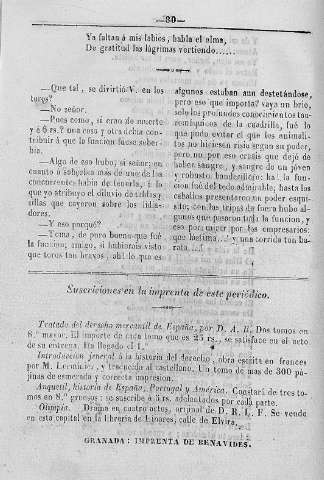 —80—
Ya faltan á mis labios, habla el alma,
De gratitud las lágrimas vertiendo......
—Que tal, se divirtió V. en los
toros?
—No señor.
—Pues como, si eran de muerte
y á 6 rs.? una cosa y otra debia con-
tribuir á que la funcion fuese sober-
bia.
—Algo de eso hubo, si señor; en
cuanto á soberbia mas de uno de los
concurrentes habia de tenerla, á lo
que yo atribuyo el diluvio de
que cayeron sobre los lidia-
dores.
—Y eso porqué?
—Toma, de puro buena que fué
la funcion; amigo, si hubierais visto
que toros tan bravos, ahí lo que es
algunos estaban aun destetándose,
pero eso que importa? vaya un brio,
solo los profundos conocimientos tau-
romáquicos de la cuadrilla, fué lo
que pudo evitar el que los animali-
tos no hiciesen riza segun su poder,
pero no por eso crísis que dejó de
haber sangre, y sangre de un jóven
y robusto banderillero: ha.. la fun-
cion fué del todo admirable; hasta los
caballos presentaron un poder esqui-
sito, con las tripas de fuera hubo al-
gunos que pasaron toda la funcion, y
eso por mugir por los empresarios:
que lástima...! y una corrida tan ba-
rata....!
Suscriciones en la imprenta de este periódico.
Tratado del derecho mercantil de España, por D. A. R. Dos tomos en
8.º mayor. El importe de cada tomo que es 25 rs., se satisface en el acto
de su entrega. Ha llegado el 1.º
Introduccion jeneral á la historia del derecho, obra escrita en frances
por M. Lerminier, y traducida al castellano. Un tomo de mas de 300 pá-
jinas de esmerada y correcta impresion.
Anquetil, historia de España, Portugal y América. Constará de tres to-
mos en 8.º gruesos: se suscribe á 5 rs. adelantados por cada parte.
Olimpia. Drama en cuatro actos, orijinal de D. R. L. F. Se vende
en esta capital en la libreria de Linares, calle de Elvira.
GRANADA: IMPRENTA DE BENAVIDES.